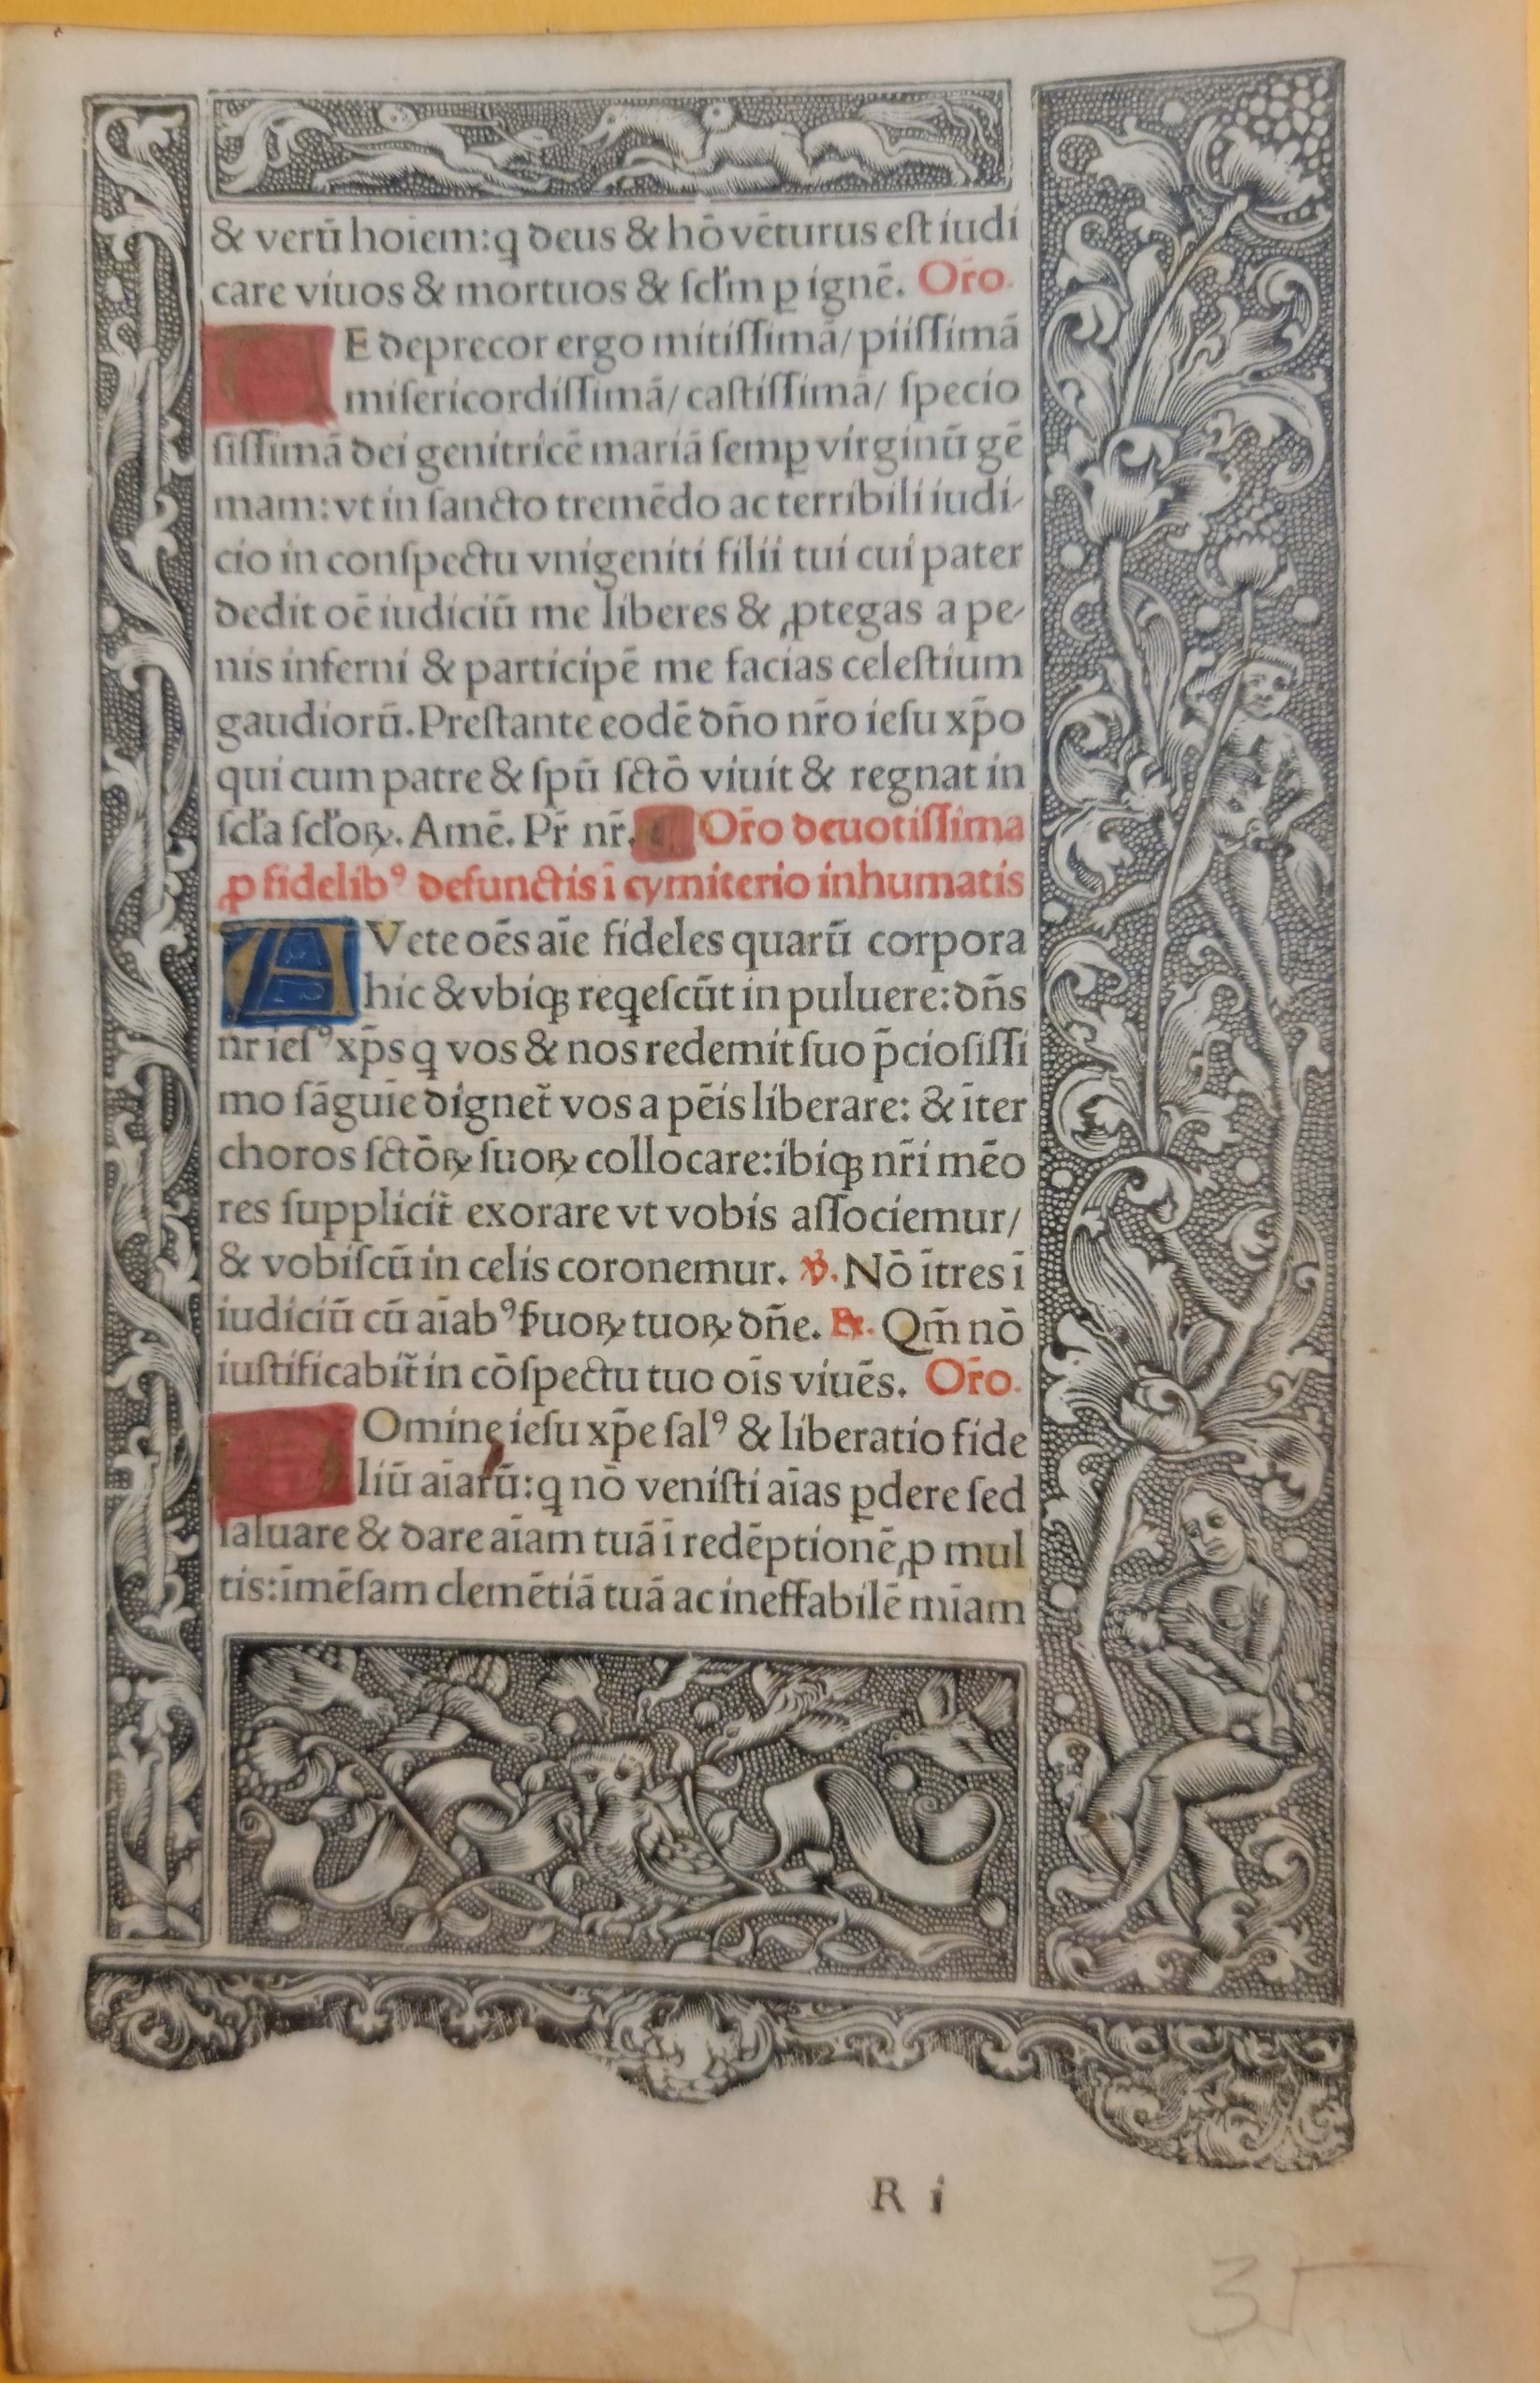 & verū hoiem:q deus & hō vēturus eſt iudi
care viuos & mortuos & ſcłm ꝑ ignē. Oro.
E deprecor ergo mitiſſimā/ piiſſimā
miſericordiſſimā/ caſtiſſimā/ ſpecio
ſiſſimā dei genitricē mariā ſemꝑ virginū gē
mam: vt in ſancto tremēdo ac terribili iudi⸗
cio in conſpectu vnigeniti filii tui cui pater
dedit oē iudiciū me liberes & ꝓtegas a pe⸗
nis inferni & participē me facias celeſtium
gaudiorū. Preſtante eodē dño nr̄o ieſu xp̄o
qui cum patre & ſpū ſctō viuit & regnat in
ſcła ſcłoꝝ. Amē. Pr̄ nr̄. Or̄o deuotiſſima
ꝓ fidelibꝰ defunctis ī cymiterio inhumatis
A Vete oēs aīe fideles quarū corpora
hic & vbiqꝫ reqeſcūt in puluere: dn̄s
nr ieſꝰ xp̄s q vos & nos redemit ſuo p̄cioſiſſi
mo ſāguīe dignet̄ vos a pēis liberare: & īter
choros ſctōꝝ ſuoꝝ collocare: ibiqꝫ nr̄i mēo
res ſupplicit̄ exorare vt vobis aſſociemur/
& vobiſcū in celis coronemur. ℣. Nō ītres ī
iudiciū cū aīabꝰ ẜuoꝝ tuoꝝ dn̄e. ℟. Qm̄ nō
iuſtificabit̄ in cōſpectu tuo oīs viuēs. Or̄o.
D Omine ieſu xp̄e ſalꝰ & liberatio fide
liū aīarū: q nō veniſti aīas ꝑdere ſed
ſaluare & dare aīam tuā ī redēptionē ꝓ mul
tis: īmēſam clemētiā tuā ac ineffabilē mīam
R i
35